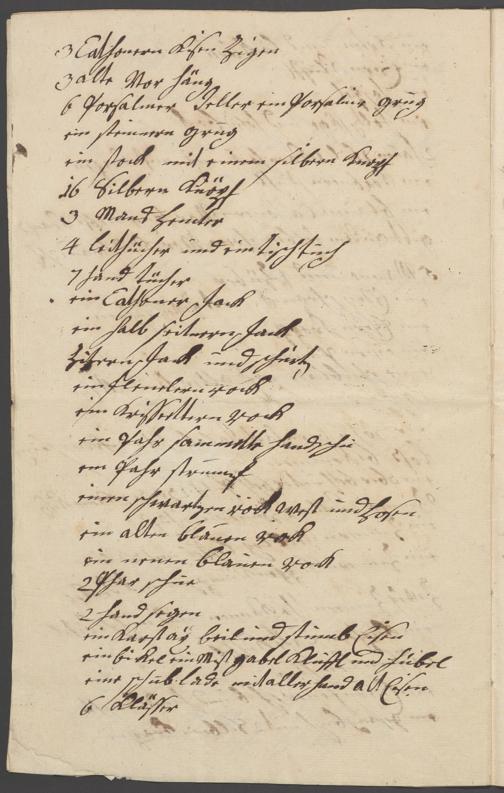 3 Cathonern Kisen Zigen
3 alte Vor häng
6 Porsaliner Deller ein Porsalin grug
ein steinern grug
ein stock mit einem silbern Knöpf
16 Silbern Knöpf
3 Mans hemter
4 leithücher und ein tischtuch
7 hand tücher
ein Cathoner Jack
ein halb seitnern Jack
Zitzern Jack und schürtz
ein rock
ein rock
ein Pahr sammette handschu
ein Pahr strümpf
einen schwartzen rock west und hosen
ein alten blauen rock
ein neuen blauen rock
2 Phar schue
2 hand segen
ein Karst äx beil und stimb Eisen
ein bickel ein Mist gabel Klüfft und hübel
eine schublade mit aller hand alt Eisen
6 Klässer